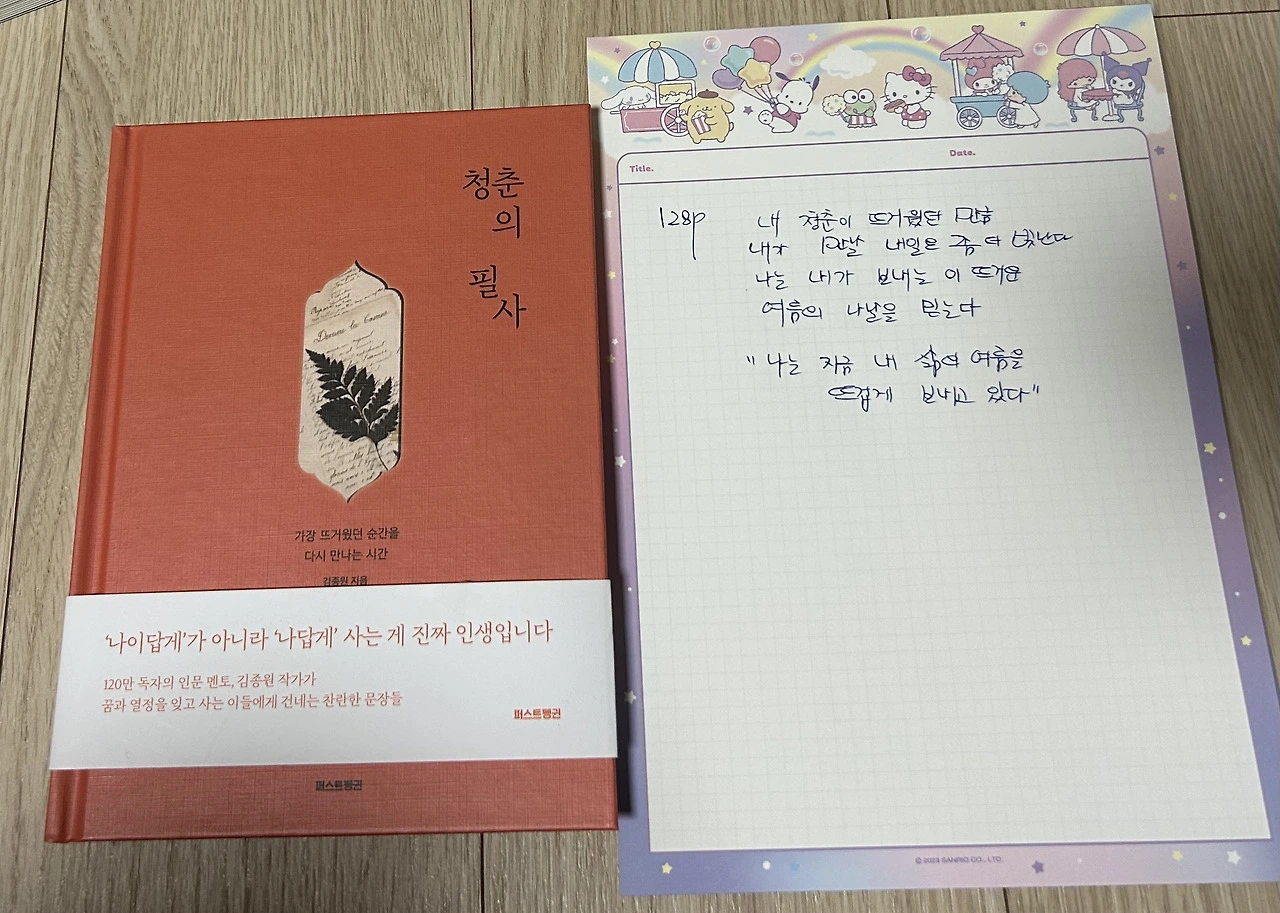 청춘
의
필
사
Demme la Comme
가장 뜨거웠던 순간을
다시 만나는 시간
김종원 지음
‘나이답게’가 아니라 ‘나답게’ 사는 게 진짜 인생입니다
120만 독자의 인문 멘토, 김종원 작가가
꿈과 열정을 잊고 사는 이들에게 건네는 찬란한 문장들
퍼스트펭귄
퍼스트펭귄
Title.
Date.
128p
내 청춘이 뜨거웠던 만큼
내가 만날 내일은 좀 더 빛난다
나는 내가 보내는 이 뜨거운
여름의 나날을 믿는다
"나는 지금 내 삶의 여름을
뜨겁게 보내고 있다"
© 2023 SANRIO CO., LTD.